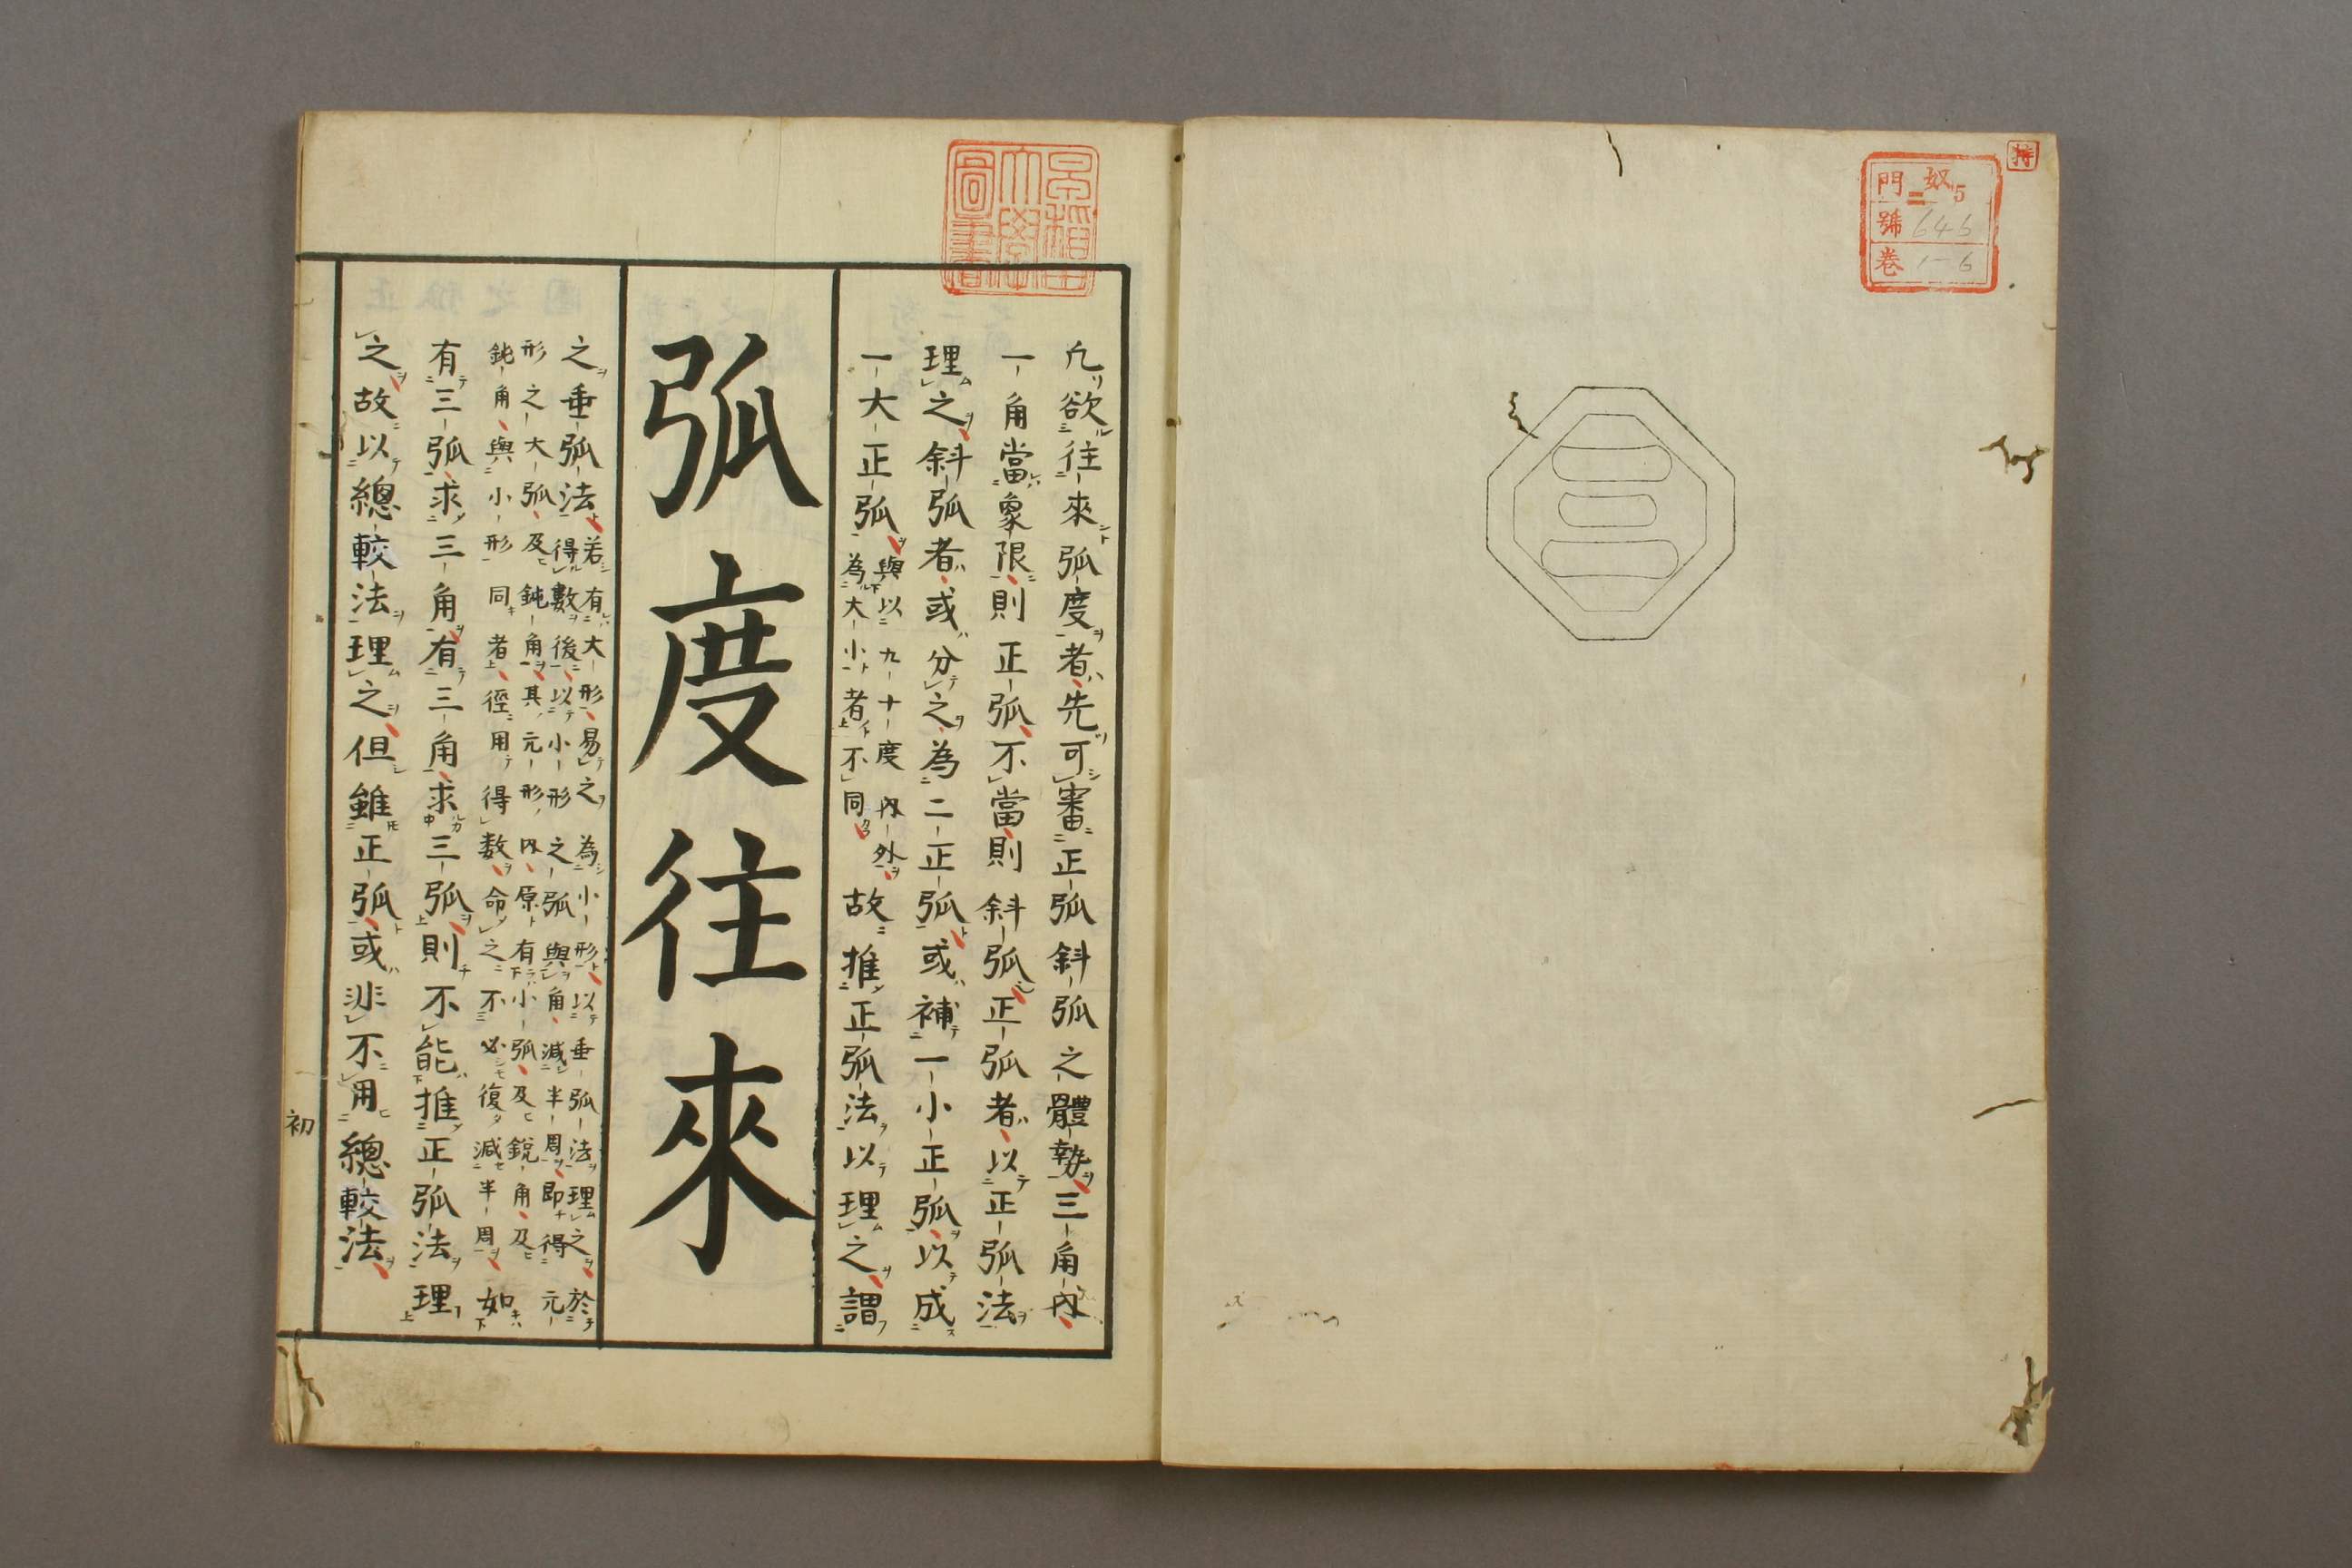 持
門 奴 5
號 646
卷 1-6
早稻田
大學
圖書
凢欲往來弧度者先可審正弧斜弧之體勢三角內
一角當象限則正弧不當則斜弧正弧者以正弧法
理之斜弧者或分之為二正弧或補一小正弧以成
一大正弧
與以九十度內外
為大小者不同
故推正弧法以理之謂
弧度往來
之垂弧法
若有大形易之為小形以垂弧法理之於
得數後以小形之弧與角減半周即得元
形之大弧及鈍角其元形內原有小弧及銳角及
鈍角與小形同者徑用得数命之不必復減半周如
有三弧求三角有三角求三弧則不能推正弧法理
之故以總較法理之但雖正弧或非不用總較法
初